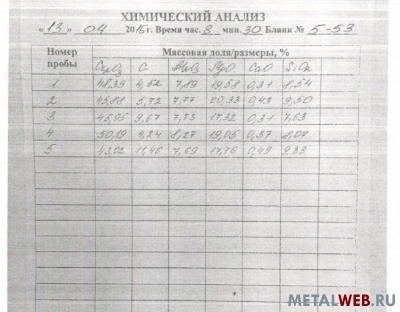 ХИМИЧЕСКИЙ АНАЛИЗ
"13" 04 2015г. Время час. 8 мин. 30 Бланк № 5-53
Номер пробы Массовая доля/размеры, %
Cr₂O₃ C Al₂O₃ MgO CaO SiO₂
1 48,39 4,62 7,89 19,58 0,31 8,54
2 45,88 5,72 7,77 20,33 0,43 9,50
3 45,95 9,67 7,73 17,32 0,31 7,63
4 50,19 8,27 19,05 0,37 8,07
5 43,02 11,46 7,69 17,76 0,49 9,33
METALWEB.RU